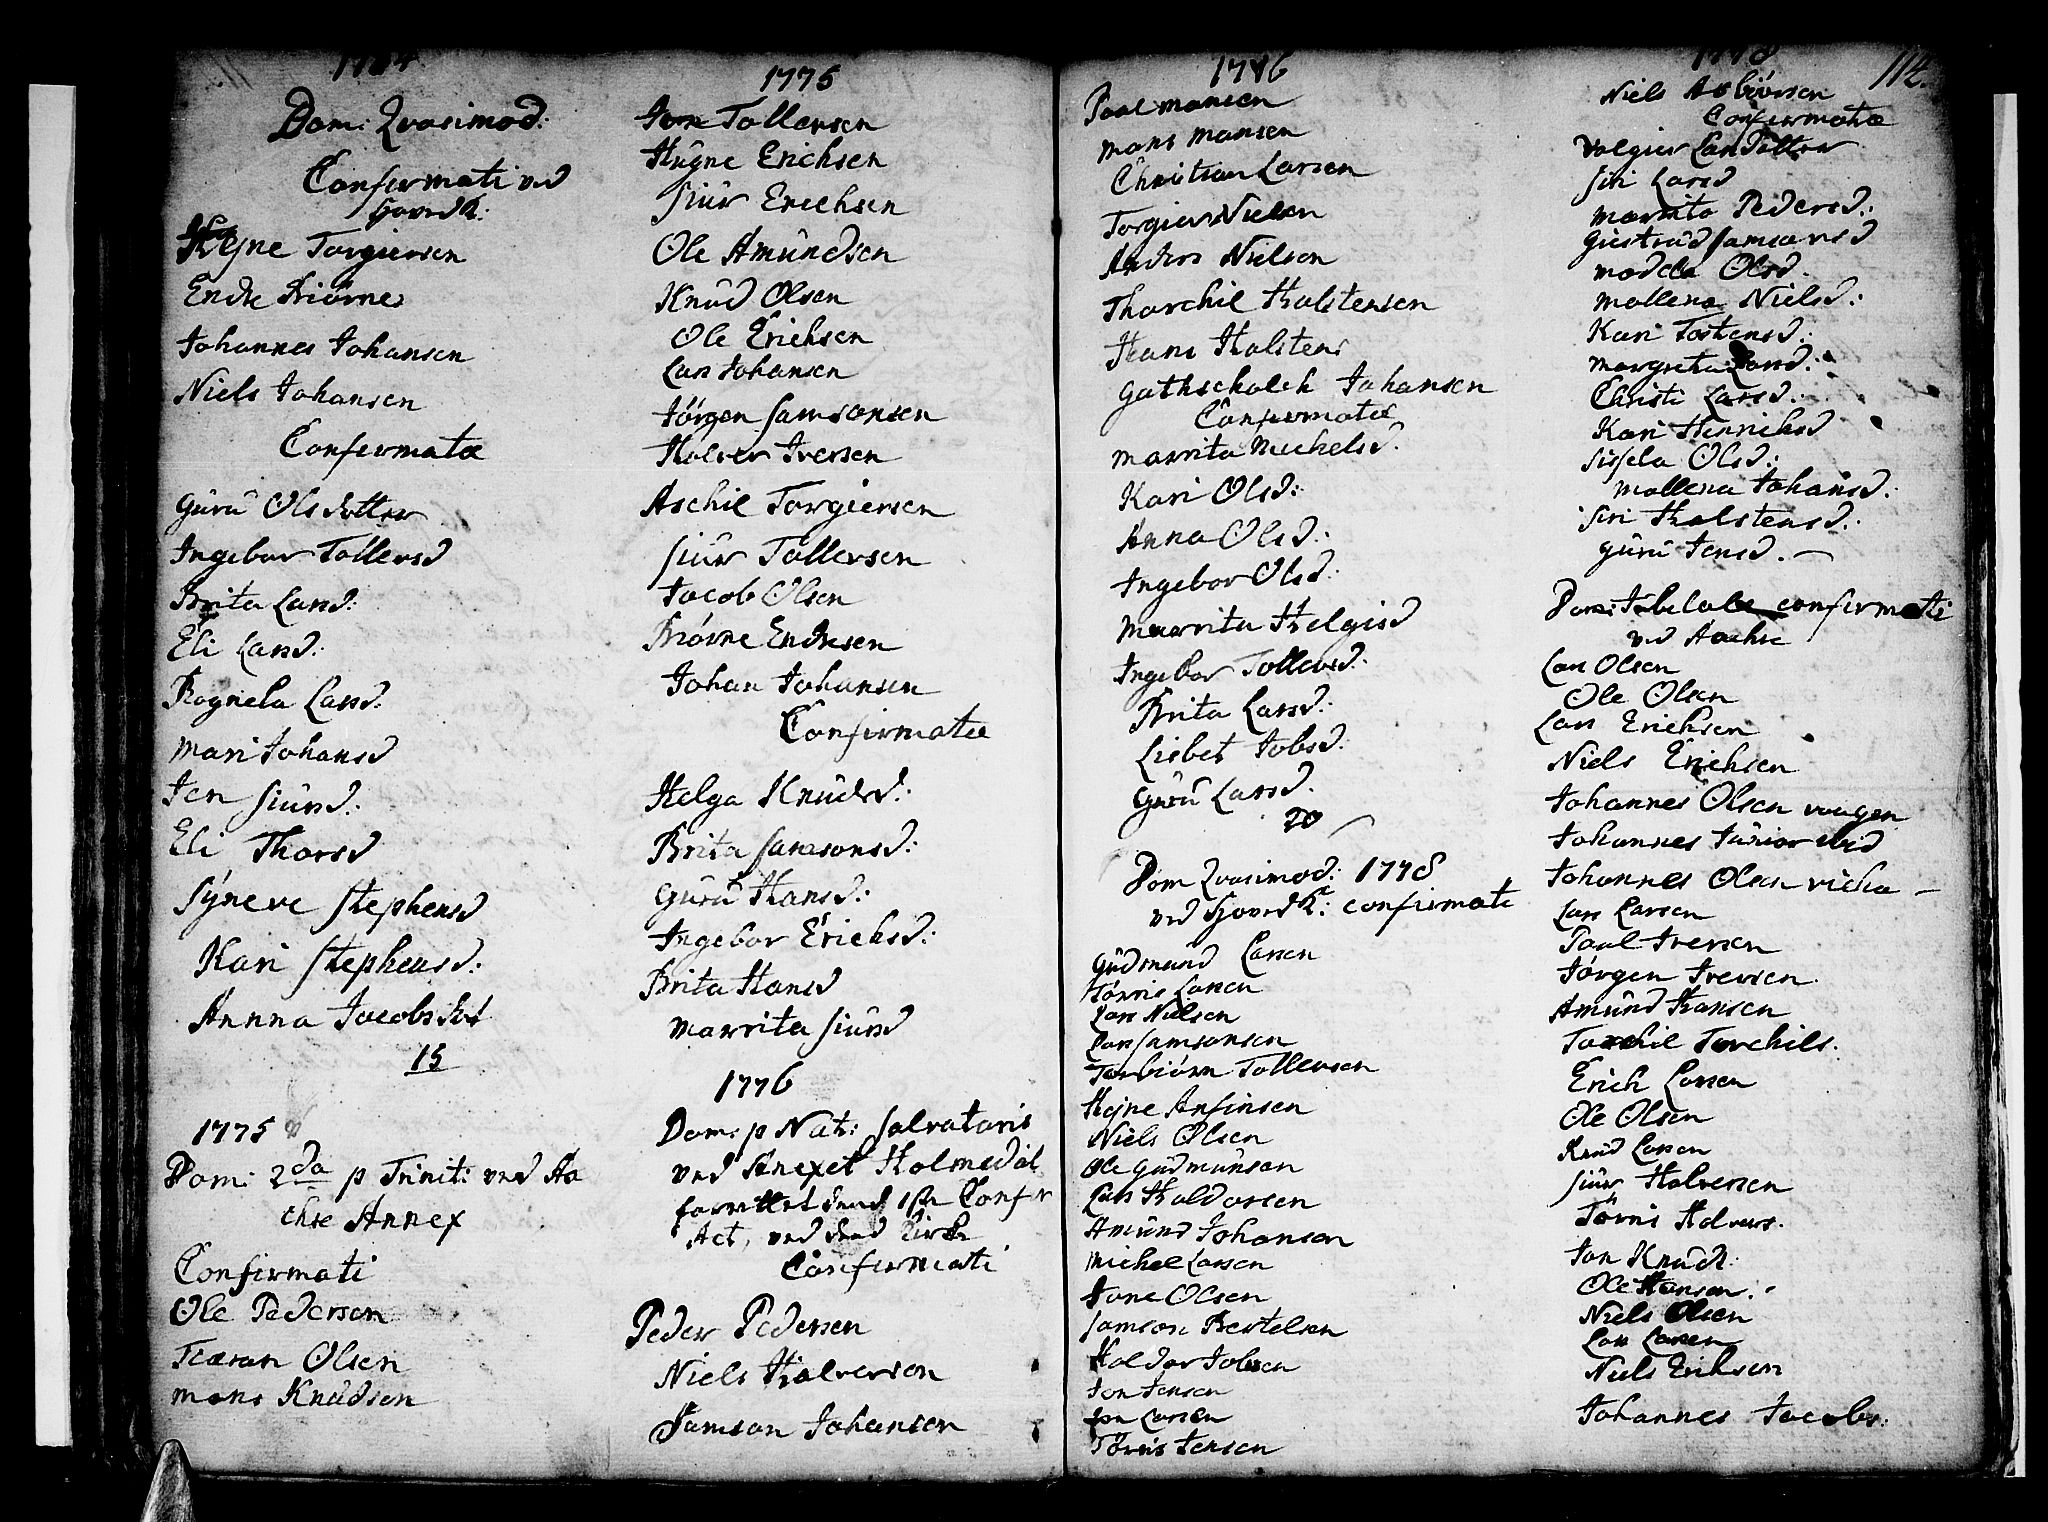 1774
Dom: Qvasimod:
Confirmati ved
Hovedk:
Hejne Torgiersen
Endre Biörne
Johannes Johansen
Niels Johansen
Confermatæ
Gurü Olsdatter
Ingebor Tollersd
Brita Larsd:
Eli Larsd:
Rognela Larsd:
Mari Johansd
Jen Siürsd:
Eli Thorsd
Sÿneve Stephensd
Kari Stephensd:
Annna Jacobsdot
15
1775
Dom: 2da p Trinit: ved Aa
chre Annex
Confirmati
Ole Pedersen
Olsen
Mons Knüdsen
1775
Tollersen
Hügne Erichsen
Siür Erichsen
Ole Amündsen
Knüd Olsen
Ole Erichsen
Lars Johansen
Jörgen Samsonsen
Halver Iversen
Aschil Torgiersen
Siür Tollersen
Jacob Olsen
Biörne Endresen
Johan Johansen
Confirmatæ
Helga Knüdsd:
Brita Samsonsd:
Gürü Hansd:
Ingebor Erichsd:
Brita Hansd
Marrita Siürsd
1776
Dom: p Nat: Salvatoris
ved Anexet Holmedal
forrettet dend 1ste Confir
Act, ved dend Kirke
Confirmati
Peder Pedersen
Niels Halversen
Samson Johansen
1776
Poul Monsen
Mons Monsen
Christian Larsen
Torgier Nielsen
Anders Nielsen
Thorchil Holstensen
Hans Holstens
Gathschalch Johansen
Confermatæ
Marrita Michelsd.
Kari Olsd:
Anna Olsd:
Ingebor Olsd:
Marrita Helgisd
Ingebor Tollersd:
Brita Larsd:
Lisbet Jobsd:
Gürü Larsd.
20
Dom Qvasimod: 1778
ved Hovedk: confirmati
Güdmünd Larsen
Törris Larsen
Lars Nielsen
Lars Samsonsen
Torbiörn Tollersen
Hejne Anfinsen
Niels Olsen
Ole Güdmünsen
Lars Haldorsen
Amünd Johansen
Michel Larsen
Jone Olsen
Samson Bertelsen
Haldor Jobsen
Jon Jensen
Jon Larsen
Törris Jensen
1778
112.
Niels Asbiörsen
Confermatæ
Valgier Larsdatter
Siri Larsd
Marrita Pedersd:
Giertrüd Samsonsd
Madela Olsd.
Mallena Nielsd:
Kari Tostensd:
Margreta Larsd:
Christi Larsd:
Kari Henrichsd
Sissela Olsd:
Mallena Johansd:
Siri Holstensd:
Gürü Jensd.
Dom: Jubilate confirmati
ved Aachre
Lars Olsen
Ole Olsen
Lars Erichsen
Niels Erichsen
Johannes Olsen vaagen
Johannes Junior ibid
Johannes Olsen vicha
Lars Larsen
Poul Iversen
Jörgen Iversen
Amünd Hansen
Torchil Torchils.
Erich Larsen
Ole Olsen
Knüd Larsen
Siür Halversen
Törris Halvers.
Jon Knüds:
Ole Hansen.
Niels Olsen
Lars Larsen
Niels Erichsen
Johannes Jacobs: